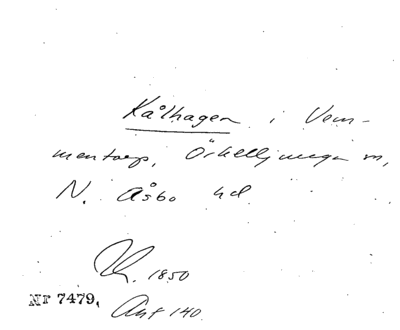 Kålhagen i Vem-
mentorp, Örkelljunga sn,
N. Åsbo hd
1850
Nr 7479, Ant 140